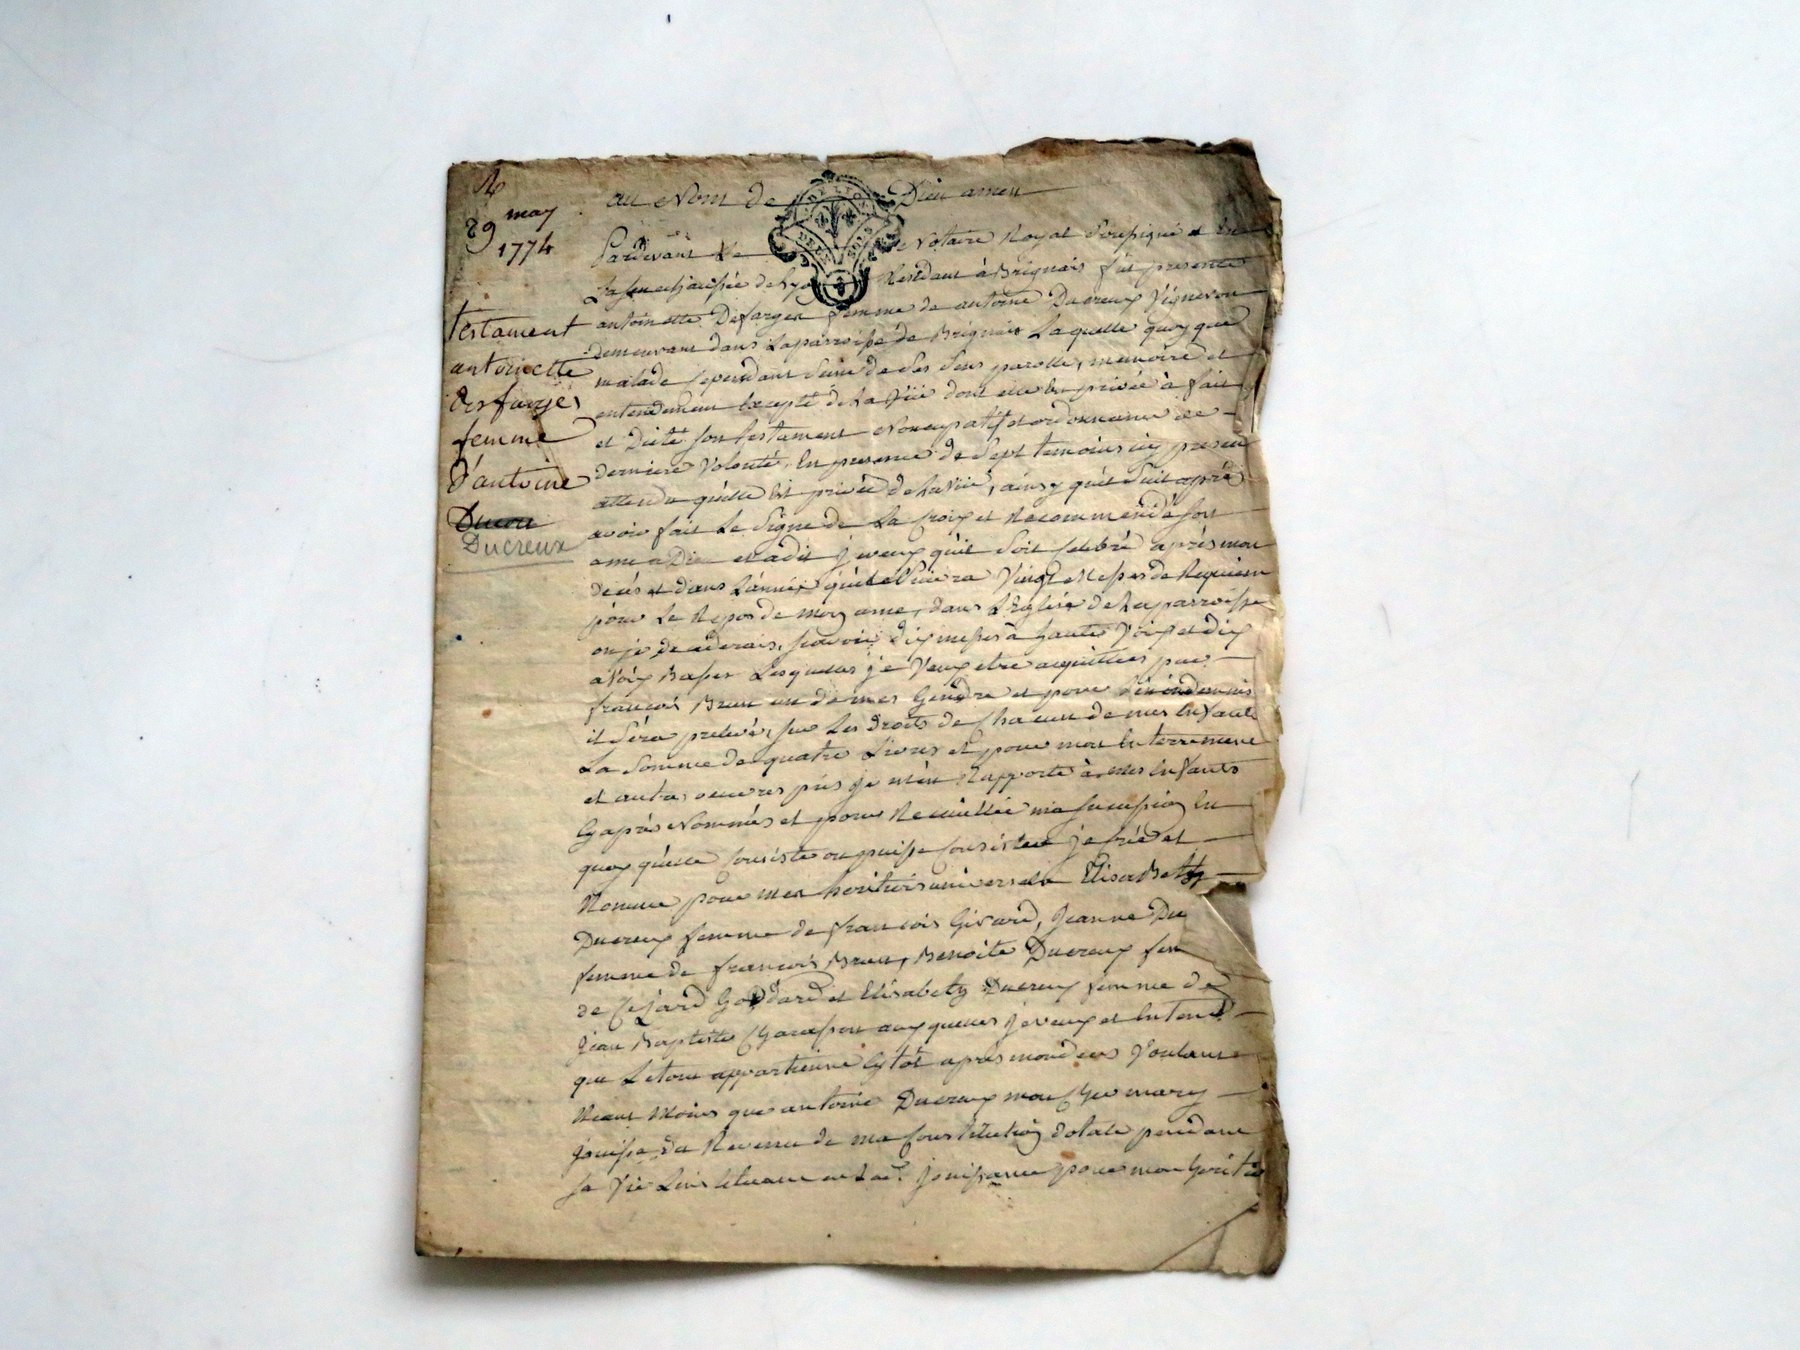 29 may
1774
testament
antoinette
desfarges
femme
d'antoine
Ducreux
au Nom de Dieu amen
Pardevant Le Notaire Royal Soussigné et en
La senechaussée de Lyon Residant à Brignais fut presente
antoinette Defarges femme de antoine Ducreux Vigneron
demeurant dans La parroisse de Brignais Laquelle quoy que
malade cependant Saine de Ses Sens parolle, memoire et
entendement Excepté de La Vüe dont elle Est privée à fait
et Dicté son testament Noncupatif et ordonnance de
derniere Volonté, En presence de Sept temoins cy presents
attendu qu'elle Est privée de La Vüe, ainsy qu'il Suit après
avoir fait Le Signe de La Croix et Recommendé son
ame a Dieu et a dit je veux qu'il Soit Celebré après mon
decés et dans L'année qu'il Vingt Messes de Requiem
pour Le Repos de mon ame, dans L'Eglise de La parroisse
ou je decederais, savoir dix messes à haute Voix et dix
a Voix Basse Lesquelles je Veux etre acquittées par
francois Brun un de mes Gendre et pour
il Sera prelevé, sur Les droits de Chacun de mes Enfants
La Somme de quatre Livres et pour mon Enterrement
et autres oeuvres pies je m'en Rapporte à mes Enfants
Cy après Nommés et pour Recuillir ma succession En
quoy qu'elle Consiste ou puisse Consister je crée et
Nomme pour mes heritiers universels Elisabeth
Ducreux femme de francois Girard, Jeanne Du
femme de francois Brun, Benoite Ducreux fem
de Cezard Goddard et Elisabeth Ducreux femme de
Jean Baptiste auxquelles je veux et Entend
que Le tout appartienne après mon deces Voulant
Neant Moins que antoine Ducreux mon Cher mary
jouisse du Revenu de ma Constitution dotale pendant
sa Vie jouissance pour mon heritier